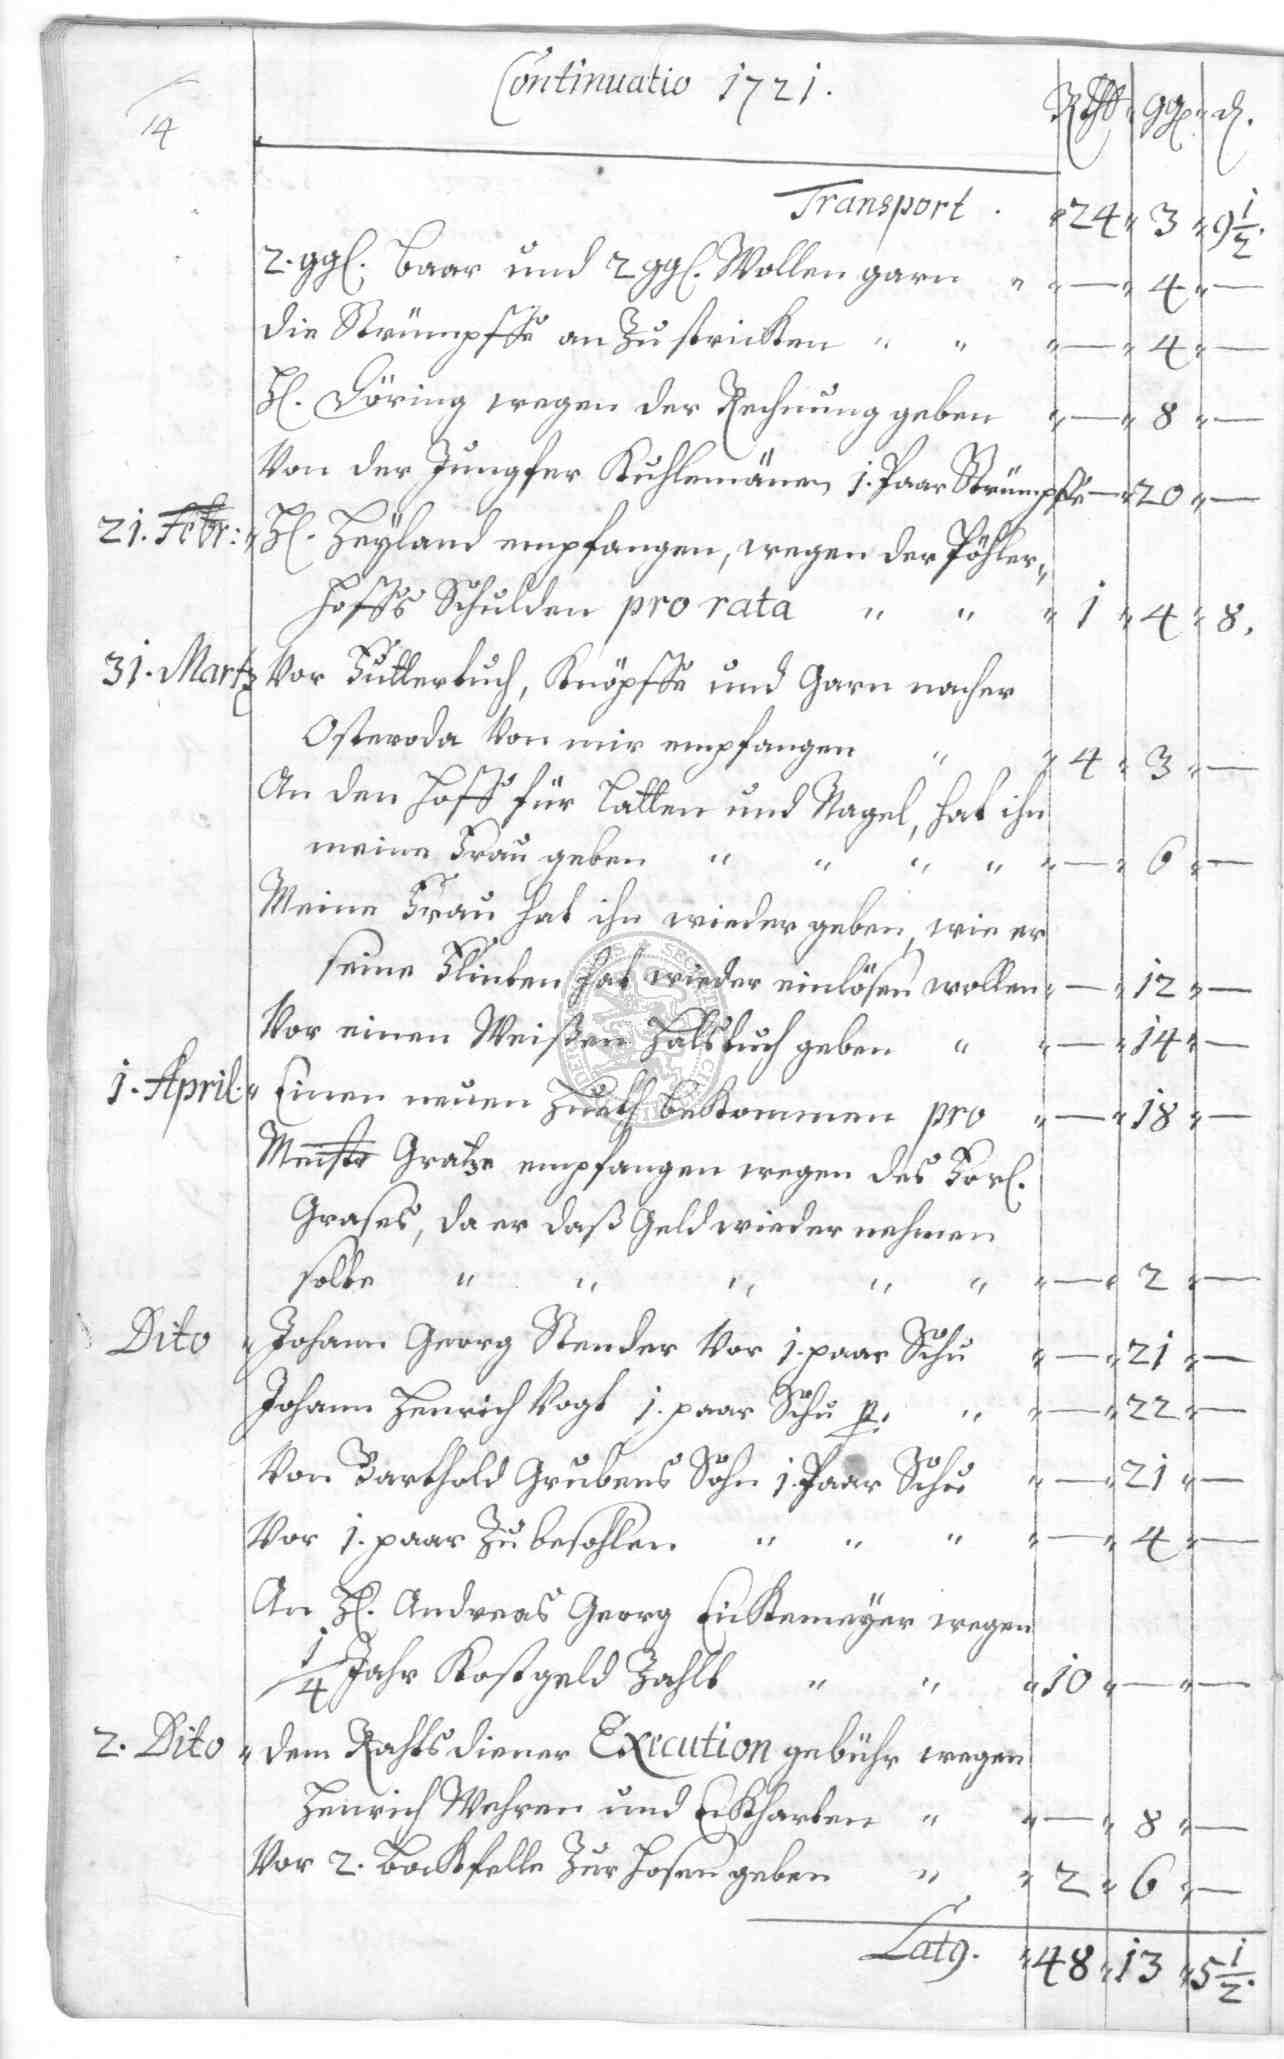 14
Continuatio 1721.
Rthl ggl d.
Transport . 24 3 9 1/2.
2. ggl. baar und 2 ggl. Wollen garn — 4 —
die Strümpffe an Zu stricken " " — 4 —
H. Döring wegen der Rechnung geben — 8 —
Von der Jungfer Kuhlemänn 1. Paar Strümpffe — 20 —
21. Febr: H. Heyland empfangen, wegen der Pöhler
hoffs Schulden pro rata " " 1 4 8.
31. Martz Vor Futtertuch, Knöpffe und Garn nacher
Osteroda Von mir empfangen " 4 3 —
An den Hoff für Latten und Nagel, hat ihn
meine Frau geben " " " " — 6 —
Meine Frau hat ihn wieder geben, wie er
seine Flinten hat wieder einlösen wollen — 12 —
Vor einen Weißen Halstuch geben " — 14 —
1. April. Einen neuen Hueth bekommen pro — 18 —
Meistr Gratze empfangen wegen des
Grases, da er daß Geld wieder nehmen
solte " " " " " — 2 —
Dito Johann Georg Stender Vor 1. paar Schu — 21 —
Johann Henrich Vogt 1. paar Schu p. " — 22 —
Von Barthold Grubens Sohn 1. Paar Schu — 21 —
Vor 1. paar Zu besohlen " " " — 4 —
An H. Andreas Georg Eickemeyer wegen
1/4 Jahr Kostgeld Zahlt " " 10 — —
2. Dito dem Rahts diener Execution gebühr wegen
Henrich Wehren und Eickharten " — 8 —
Vor 2. Bockfelle Zur Hosen geben " 2 6 —
Lat9. 48 13 5 1/2.